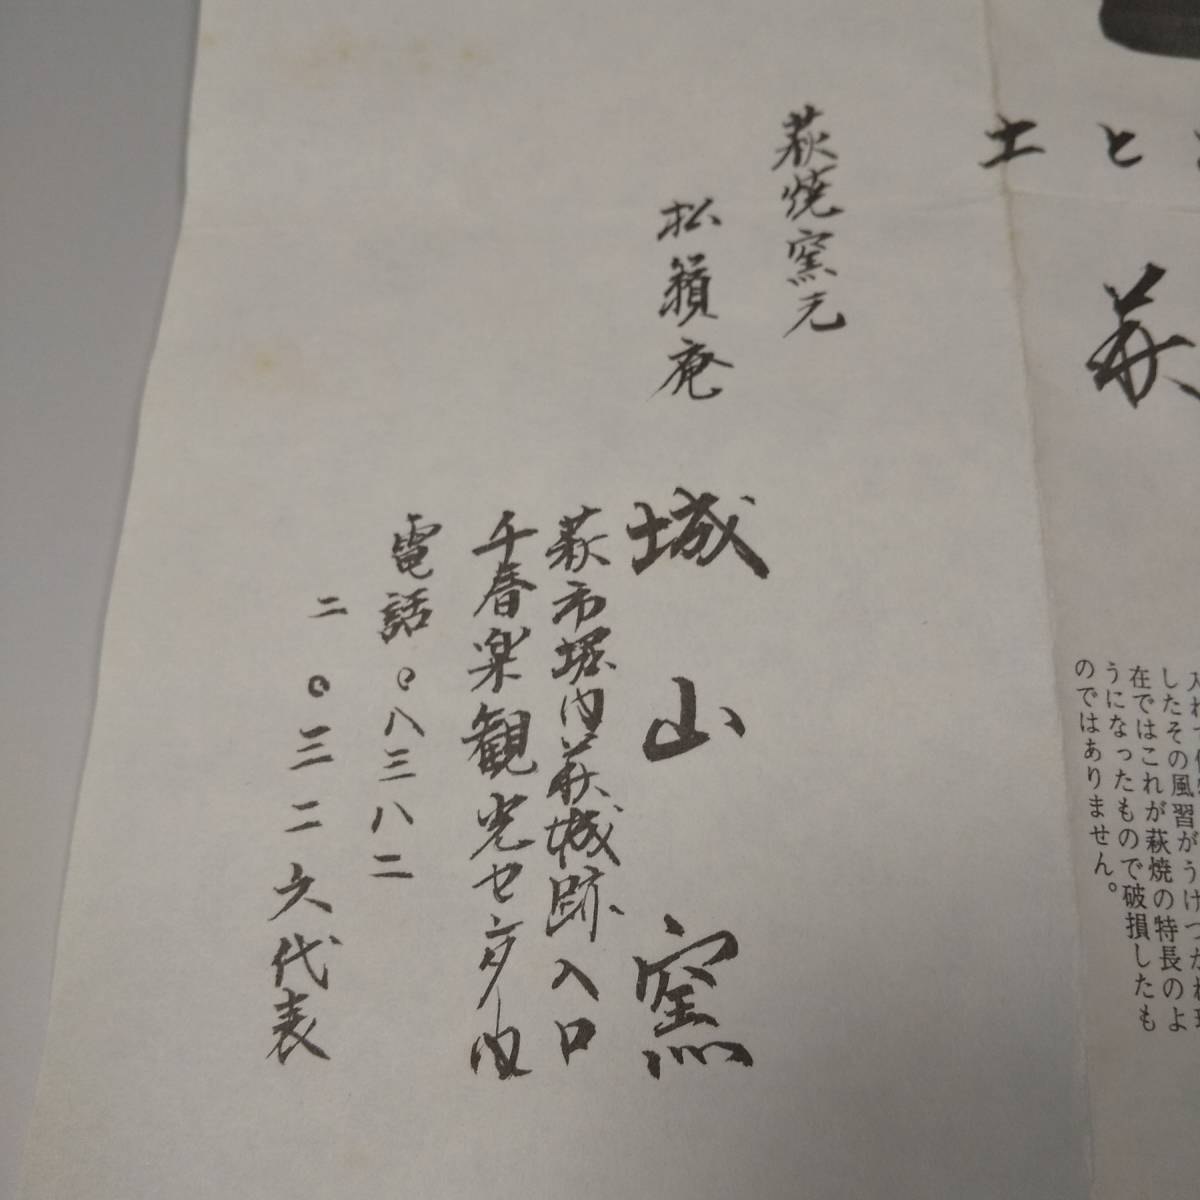 土と
萩
入れて
したその風習がうけつがれ現
在ではこれが萩焼の特長のよ
うになったもので破損したも
のではありません。
萩焼窯元
松籟庵
城山窯
萩市堀内萩城跡入口
千春楽観光センター内
電話〇八三八二
二〇三二六代表